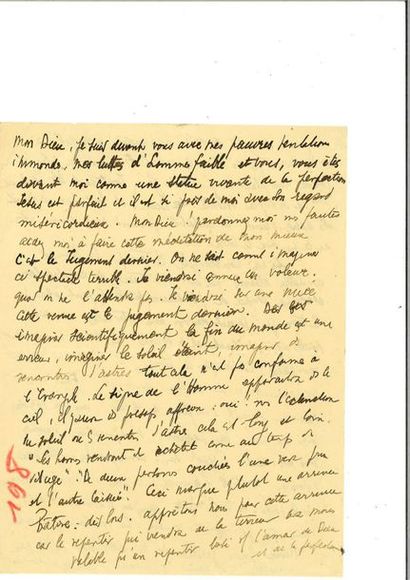 Mon Dieu, je suis devant vous avec mes pauvres tentations
immondes. Mes luttes d'homme faible et vous, vous êtes
devant moi comme une statue vivante de la perfection
Jésus est parfait et il est si près de moi avec son regard
miséricordieux. Mon Dieu ! pardonnez moi mes fautes
aidez moi à faire cette méditation de mon mieux
C'est le Jugement dernier. On ne sait comment imaginer
ce spectacle terrible. Je viendrai comme un voleur.
quand on ne l'attendra pas. Je viendrai sur une nuée
Cette venue est le jugement dernier.
imaginer scientifiquement la fin du monde est une
erreur, imaginer le soleil éteint, imaginer des
rencontres d'astres tout cela n'est pas conforme à
l'Evangile. Le signe de l'Homme apparaîtra dans le
ciel, il y aura des affreux : oui ! non l'extinction
du soleil ou rencontre d'astre cela est long et loin.
"Les hommes vendront et achetèt comme au temps du
déluge" "De deux personnes couchées l'une sera prise
et l'autre laissée. Ceci marque plutôt une arrivée
: dès lors. apprêtons nous pour cette arrivée
car le repentir qui viendra de la terreur sera moins
valable qu'un repentir bâti sur l'amour de Dieu
et de la perfection
198